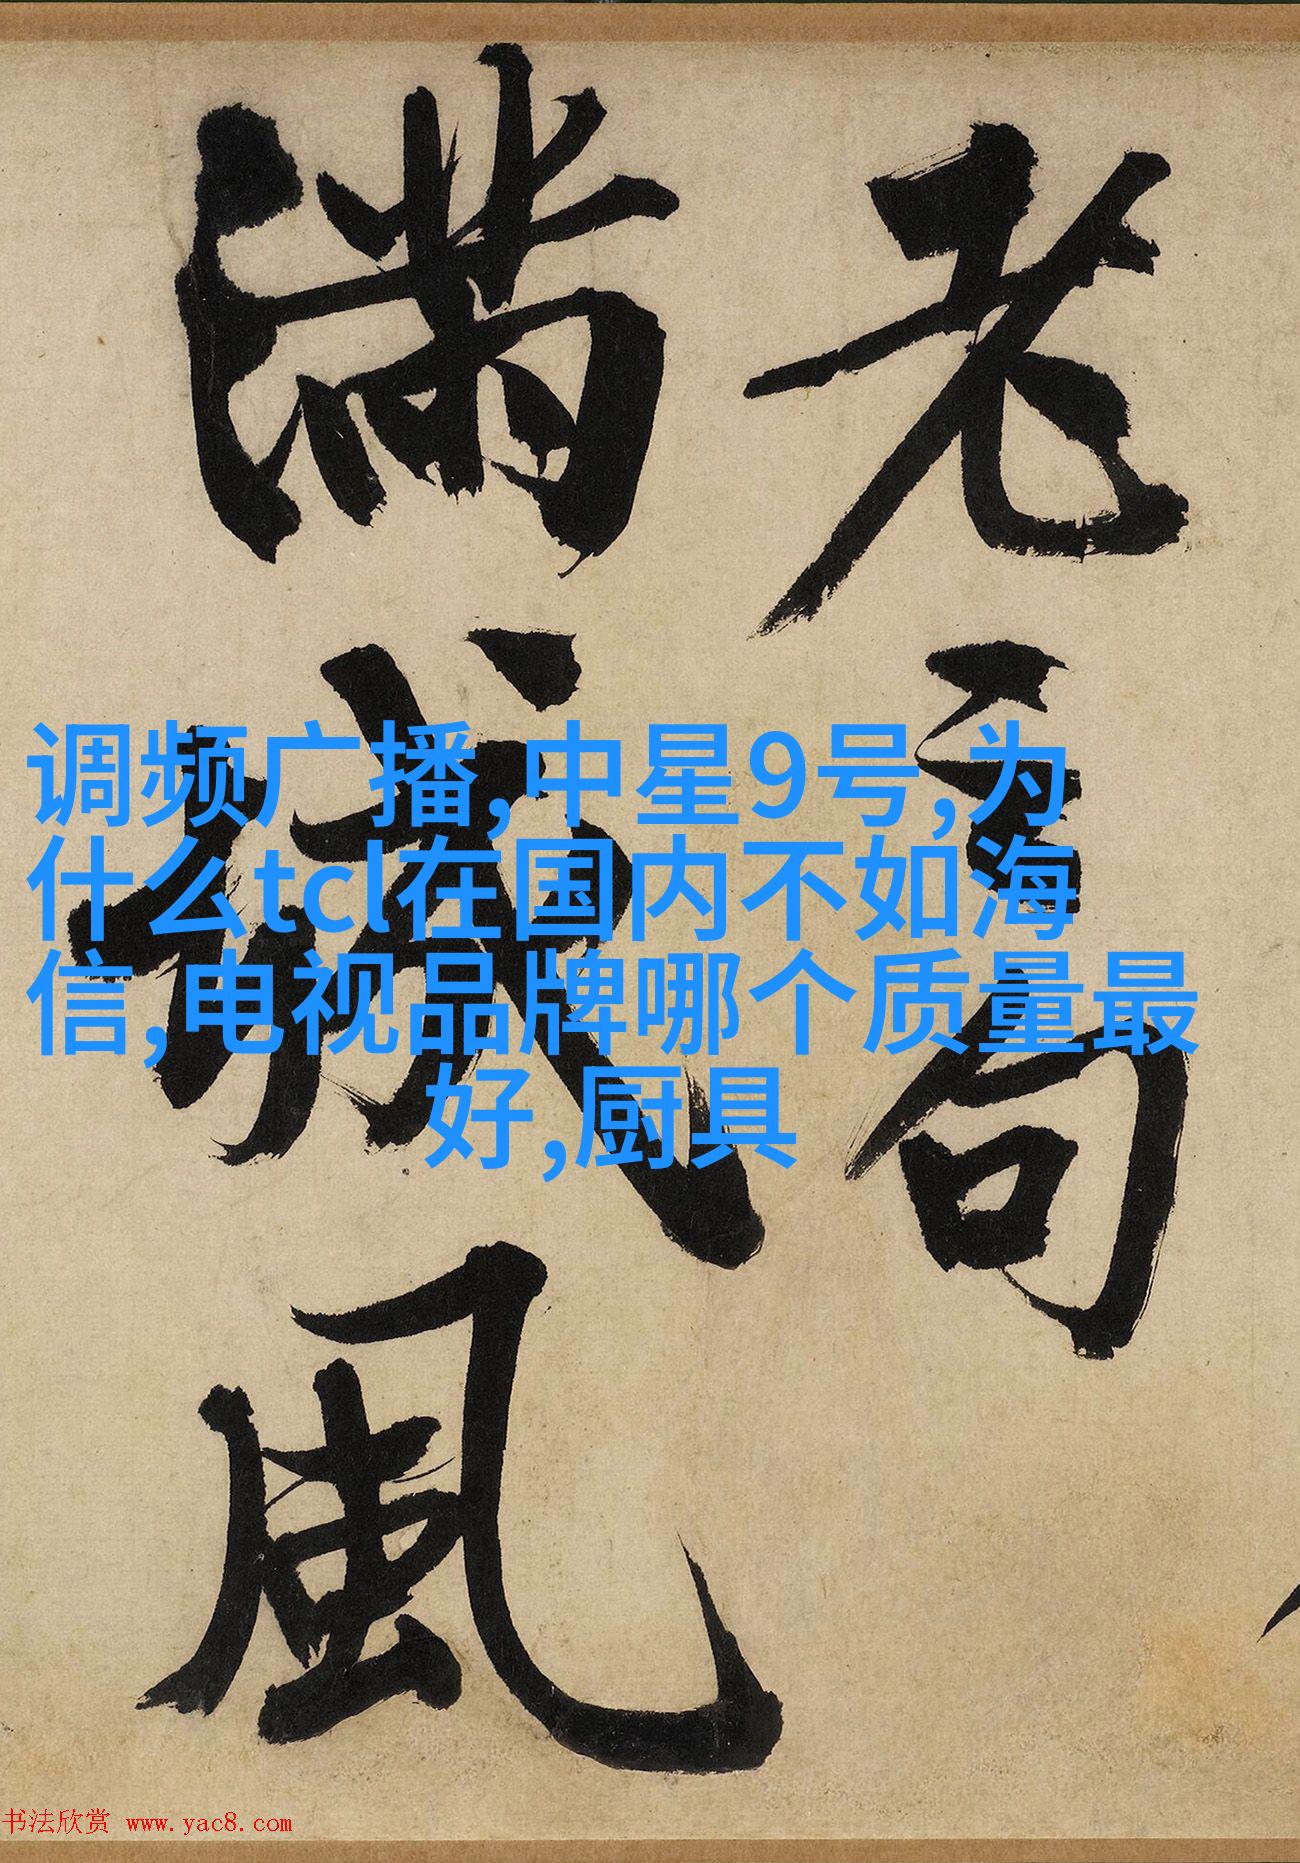 老言句
滿城風
调频广播,中星9号,为
什么tcl在国内不如海
信,电视品牌哪个质量最
好,厨具
书法欣赏 www.yac8.com